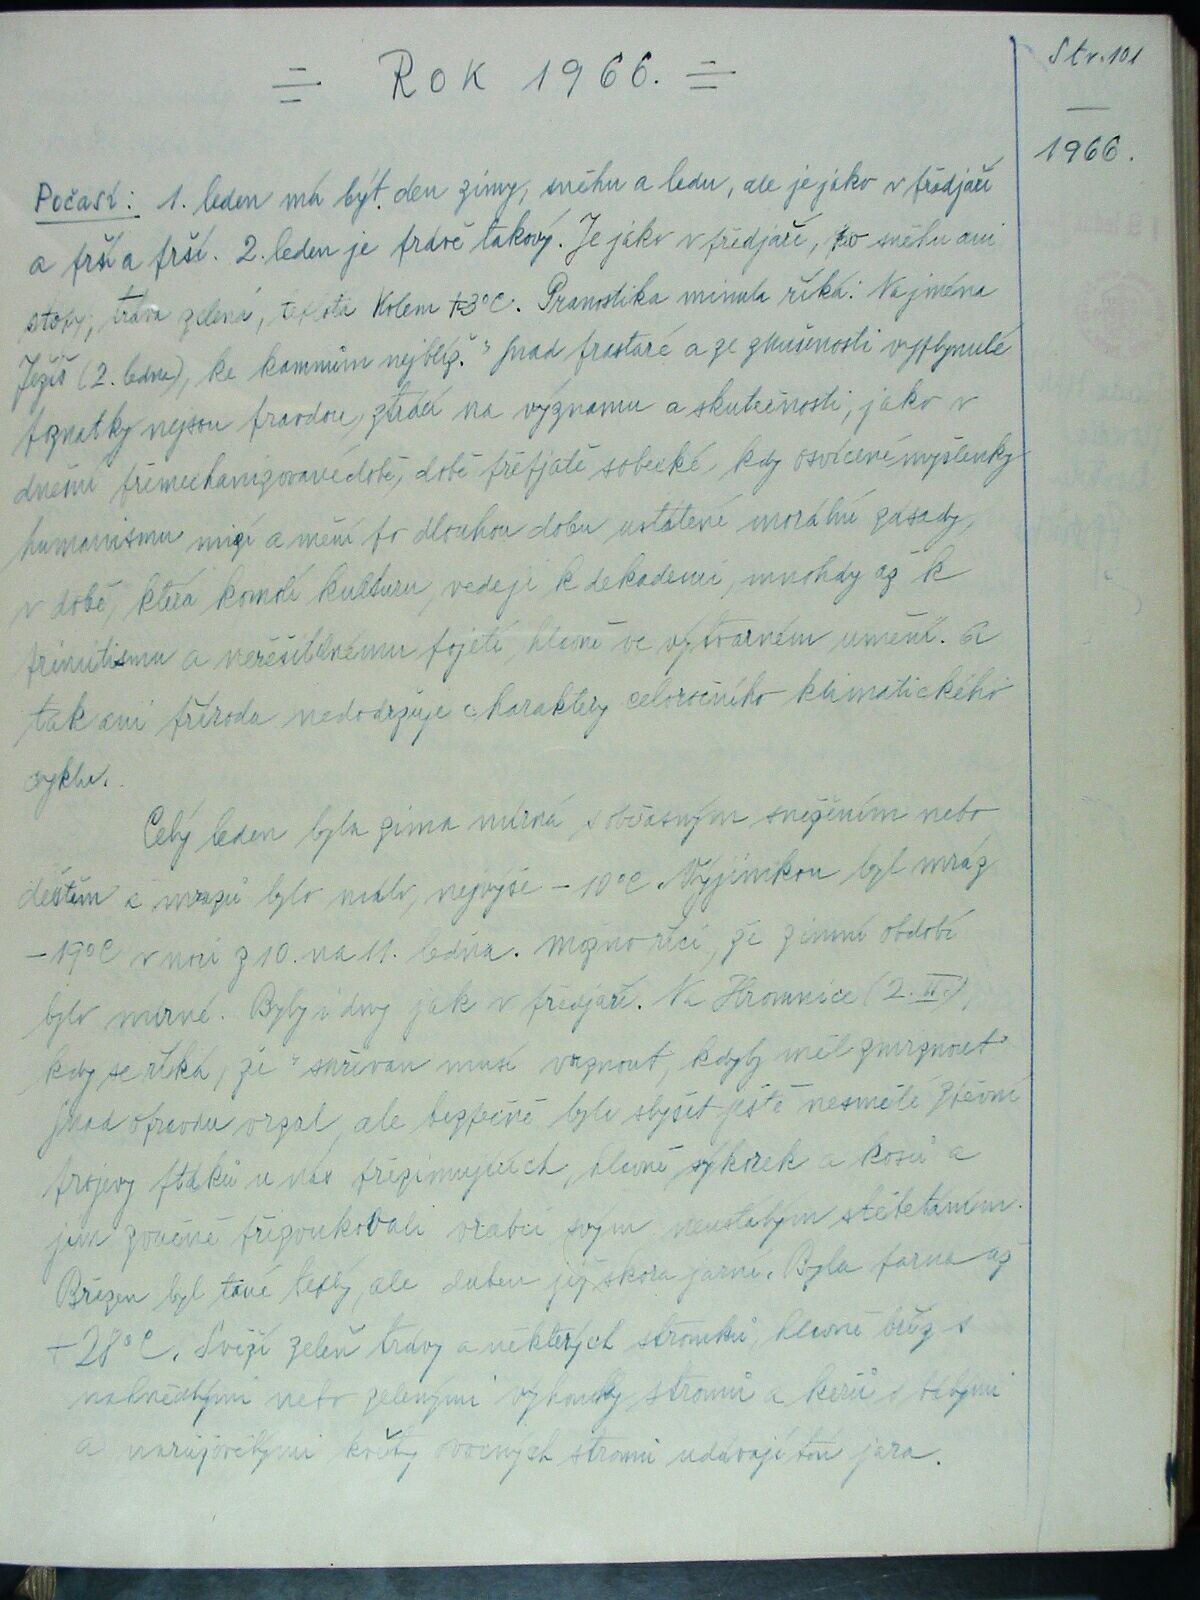 Str. 101
= Rok 1966. =
1966.
Počasí: 1. leden má být den zimy, sněhu a ledu, ale je jako v předjaří
a prší a prší. 2. leden je právě takový. Je jako v předjaří, po sněhu ani
stopy, tráva zelená, teplota kolem +3°C. Pranostika minula říká: Na jména
Ježíš (2. ledna), ke kamnům nejblíž." Snad prastaré a ze zkušenosti vyplynulé
poznatky nejsou pravdou, ztrácí na významu a skutečnosti, jako v
dnešní přemechanizované době, době přepjatě sobecké, kdy osvícené myšlenky
humanismu mizí a mění po dlouhou dobu ustálené morální zásady,
v době, která komolí kulturu, vedejí k dekadenci, mnohdy až k
primitismu a neřešitelnému pojetí, hlavně ve výtvarném umění. A
tak ani příroda nedodržuje charaktery celoročního klimatického
cyklu.
Celý leden byla zima mírná s občasným sněžením nebo
deštěm a mrazů bylo málo, nejvýše -10°C. Výjimkou byl mráz
-19°C v noci z 10. na 11. ledna. Možno říci, že zimní období
bylo mírné. Byly i dny jak v předjaří. Na Hromnice (2. II.),
kdy se říká, že "skřivan musí vrznout, kdyby měl zmrznout"
snad opravdu vrzal, ale bezpečně bylo slyšet ještě nesmělé zpěvní
projevy ptáků u nás přezimujících, hlavně sýkorek a kosů a
jim zvučně přizvukovali vrabci svým neustálým štěbetáním.
Březen byl teplý, ale duben již skora jarní. Byla parna až
+28°C. Svěží zeleň trávy a některých stromků, hlavně bříz s
nahnědlými nebo zelenými výhonky stromů a keřů s bílými
a narůžovělými květy ovocných stromů udávají tón jara.